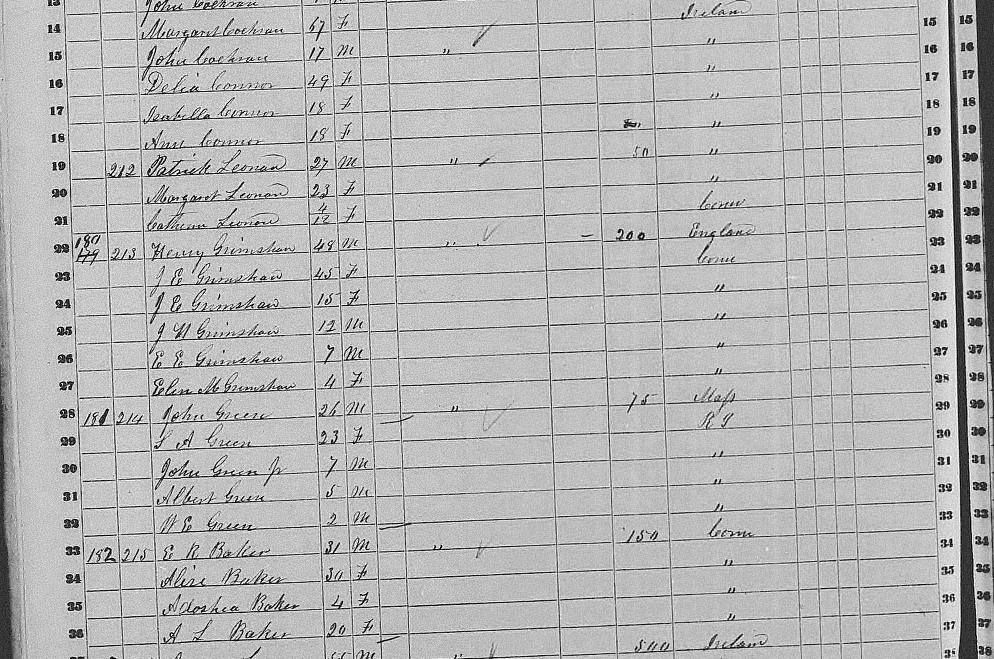 13 John Cochran
14 Margaret Cochran 47 F Ireland 15 15
15 John Cochran 17 M " " 16 16
16 Delia Connor 49 F " 17 17
17 Isabella Connor 18 F " 18 18
18 Ann Connor 18 F " 19 19
19 212 Patrick Leonan 27 M " 50 " 20 20
20 Margaret Leonan 23 F " 21 21
21 Leonan 4/12 F Conn 22 22
22 180 179 213 Henry Grimshaw 48 M " – 200 England 23 23
23 J E Grimshaw 45 F Conn 24 24
24 J E Grimshaw 15 F " 25 25
25 J H Grimshaw 12 M " 26 26
26 E E Grimshaw 7 M " 27 27
27 Elen M Grimshaw 4 F " 28 28
28 181 214 John Green 26 M " 75 Mass 29 29
29 S A Green 23 F R I 30 30
30 John Green Jr 7 M " 31 31
31 Albert Green 5 M " 32 32
32 W E Green 2 M " 33 33
33 182 215 E R Baker 31 M " 150 Conn 34 34
34 Baker 30 F " 35 35
35 Baker 4 F " 36 36
36 A L Baker 20 F " 37 37
M " 500 Ireland 38